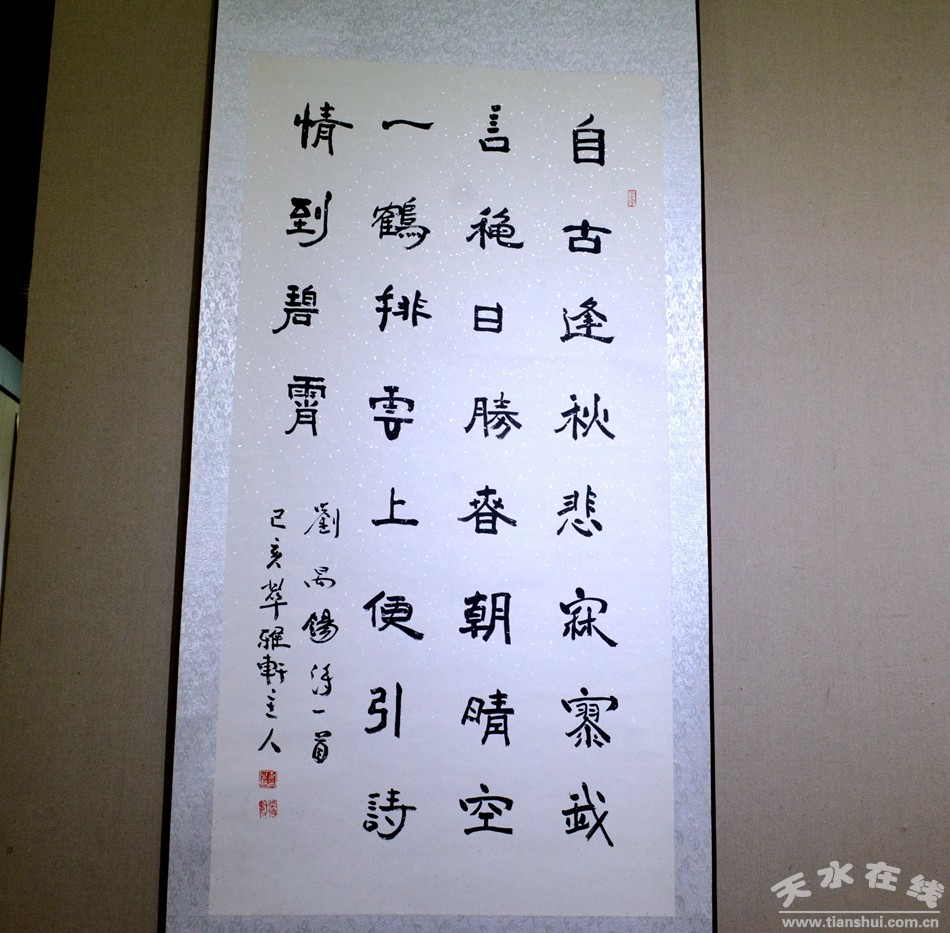 自古逢秋悲寂寥我
言穐日勝春朝晴空
一鶴排雲上便引詩
情到碧霄
劉禹錫詩一首
己亥萃雅軒主人
天水在线
www.tianshui.com.cn